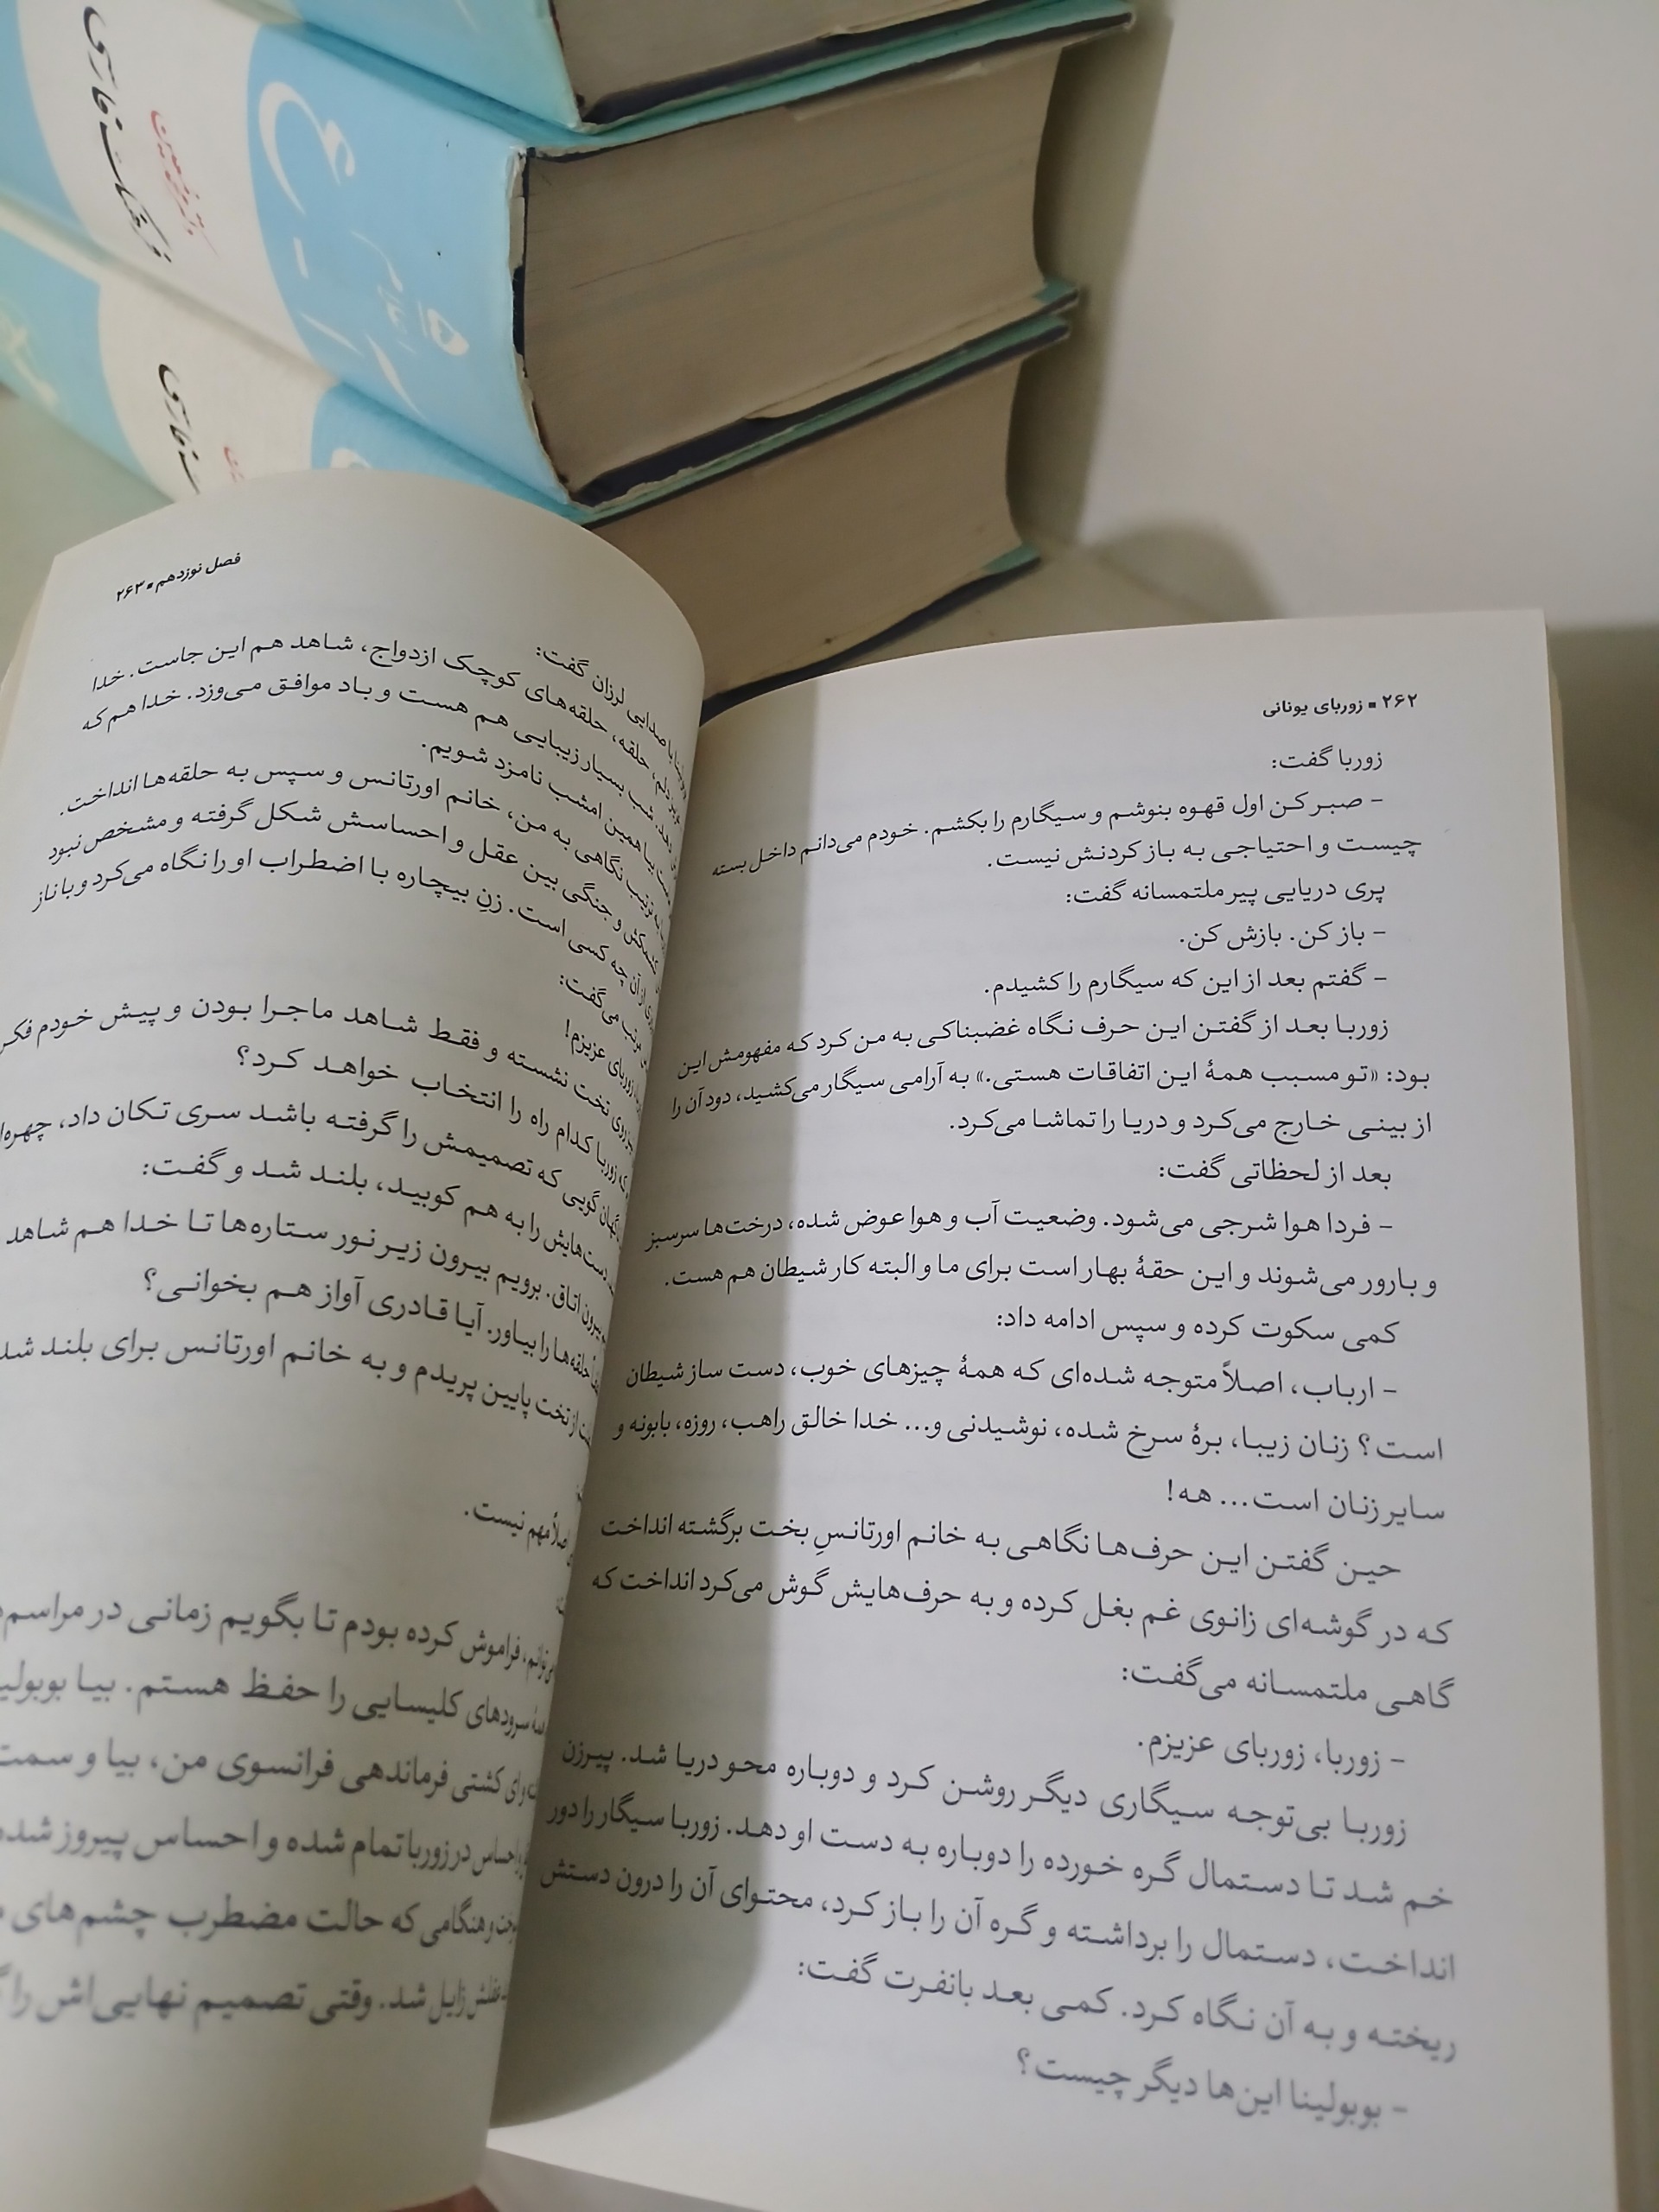 ۲۶۲ ▪ زوربای یونانی
زوربا گفت:
- صبر کن اول قهوه بنوشم و سیگارم را بکشم. خودم می‌دانم داخل بسته
چیست و احتیاجی به باز کردنش نیست.
پری دریایی پیر ملتمسانه گفت:
- باز کن. بازش کن.
- گفتم بعد از این که سیگارم را کشیدم.
زوربا بعد از گفتن این حرف نگاه غضبناکی به من کرد که مفهومش این
بود: «تو مسبب همهٔ این اتفاقات هستی.» به آرامی سیگار می‌کشید، دود آن را
از بینی خارج می‌کرد و دریا را تماشا می‌کرد.
بعد از لحظاتی گفت:
- فردا هوا شرجی می‌شود. وضعیت آب و هوا عوض شده، درخت‌ها سرسبز
و بارور می‌شوند و این حقهٔ بهار است برای ما و البته کار شیطان هم هست.
کمی سکوت کرده و سپس ادامه داد:
- ارباب، اصلاً متوجه شده‌ای که همهٔ چیزهای خوب، دست ساز شیطان
است؟ زنان زیبا، برهٔ سرخ شده، نوشیدنی و... خدا خالق راهب، روزه، بابونه و
سایر زنان است... هه!
حین گفتن این حرف‌ها نگاهی به خانم اورتانسِ بخت برگشته انداخت
که در گوشه‌ای زانوی غم بغل کرده و به حرف‌هایش گوش می‌کرد انداخت که
گاهی ملتمسانه می‌گفت:
- زوربا، زوربای عزیزم.
زوربا بی‌توجه سیگاری دیگر روشن کرد و دوباره محو دریا شد. پیرزن
خم شد تا دستمال گره خورده را دوباره به دست او دهد. زوربا سیگار را دور
انداخت، دستمال را برداشته و گره آن را باز کرد، محتوای آن را درون دستش
ریخته و به آن نگاه کرد. کمی بعد بانفرت گفت:
- بوبولینا این‌ها دیگر چیست؟
فصل نوزدهم ▪ ۲۶۳
با صدایی لرزان گفت:
حلقه، حلقه‌های کوچک ازدواج، شاهد هم این جاست. خدا
شب بسیار زیبایی هم هست و باد موافق می‌وزد. خدا هم که
بیا همین امشب نامزد شویم.
نگاهی به من، خانم اورتانس و سپس به حلقه‌ها انداخت.
و جنگی بین عقل و احساسش شکل گرفته و مشخص نبود
از آن چه کسی است. زنِ بیچاره با اضطراب او را نگاه می‌کرد و با ناز
می‌گفت:
زوربای عزیزم!
روی تخت نشسته و فقط شاهد ماجرا بودن و پیش خودم
زوربا کدام راه را انتخاب خواهد کرد؟
گویی که تصمیمش را گرفته باشد سری تکان داد،
دست‌هایش را به هم کوبید، بلند شد و گفت:
بیرون اتاق. برویم بیرون زیر نور ستاره‌ها تا خدا هم شاهد
حلقه‌ها را بیاور. آیا قادری آواز هم بخوانی؟
از تخت پایین پریدم و به خانم اورتانس برای بلند
اصلاً مهم نیست.
فراموش کرده بودم تا بگویم زمانی در
سرودهای کلیسایی را حفظ هستم. بیا
کشتی فرماندهی فرانسوی من، بیا و
احساس در زوربا تمام شده و احساس پیروز
و هنگامی که حالت مضطرب چشم‌های
زایل شد. وقتی تصمیم نهایی‌اش را
فرهنگ فارسی
دکتر محمد معین
اعلام
فارسی